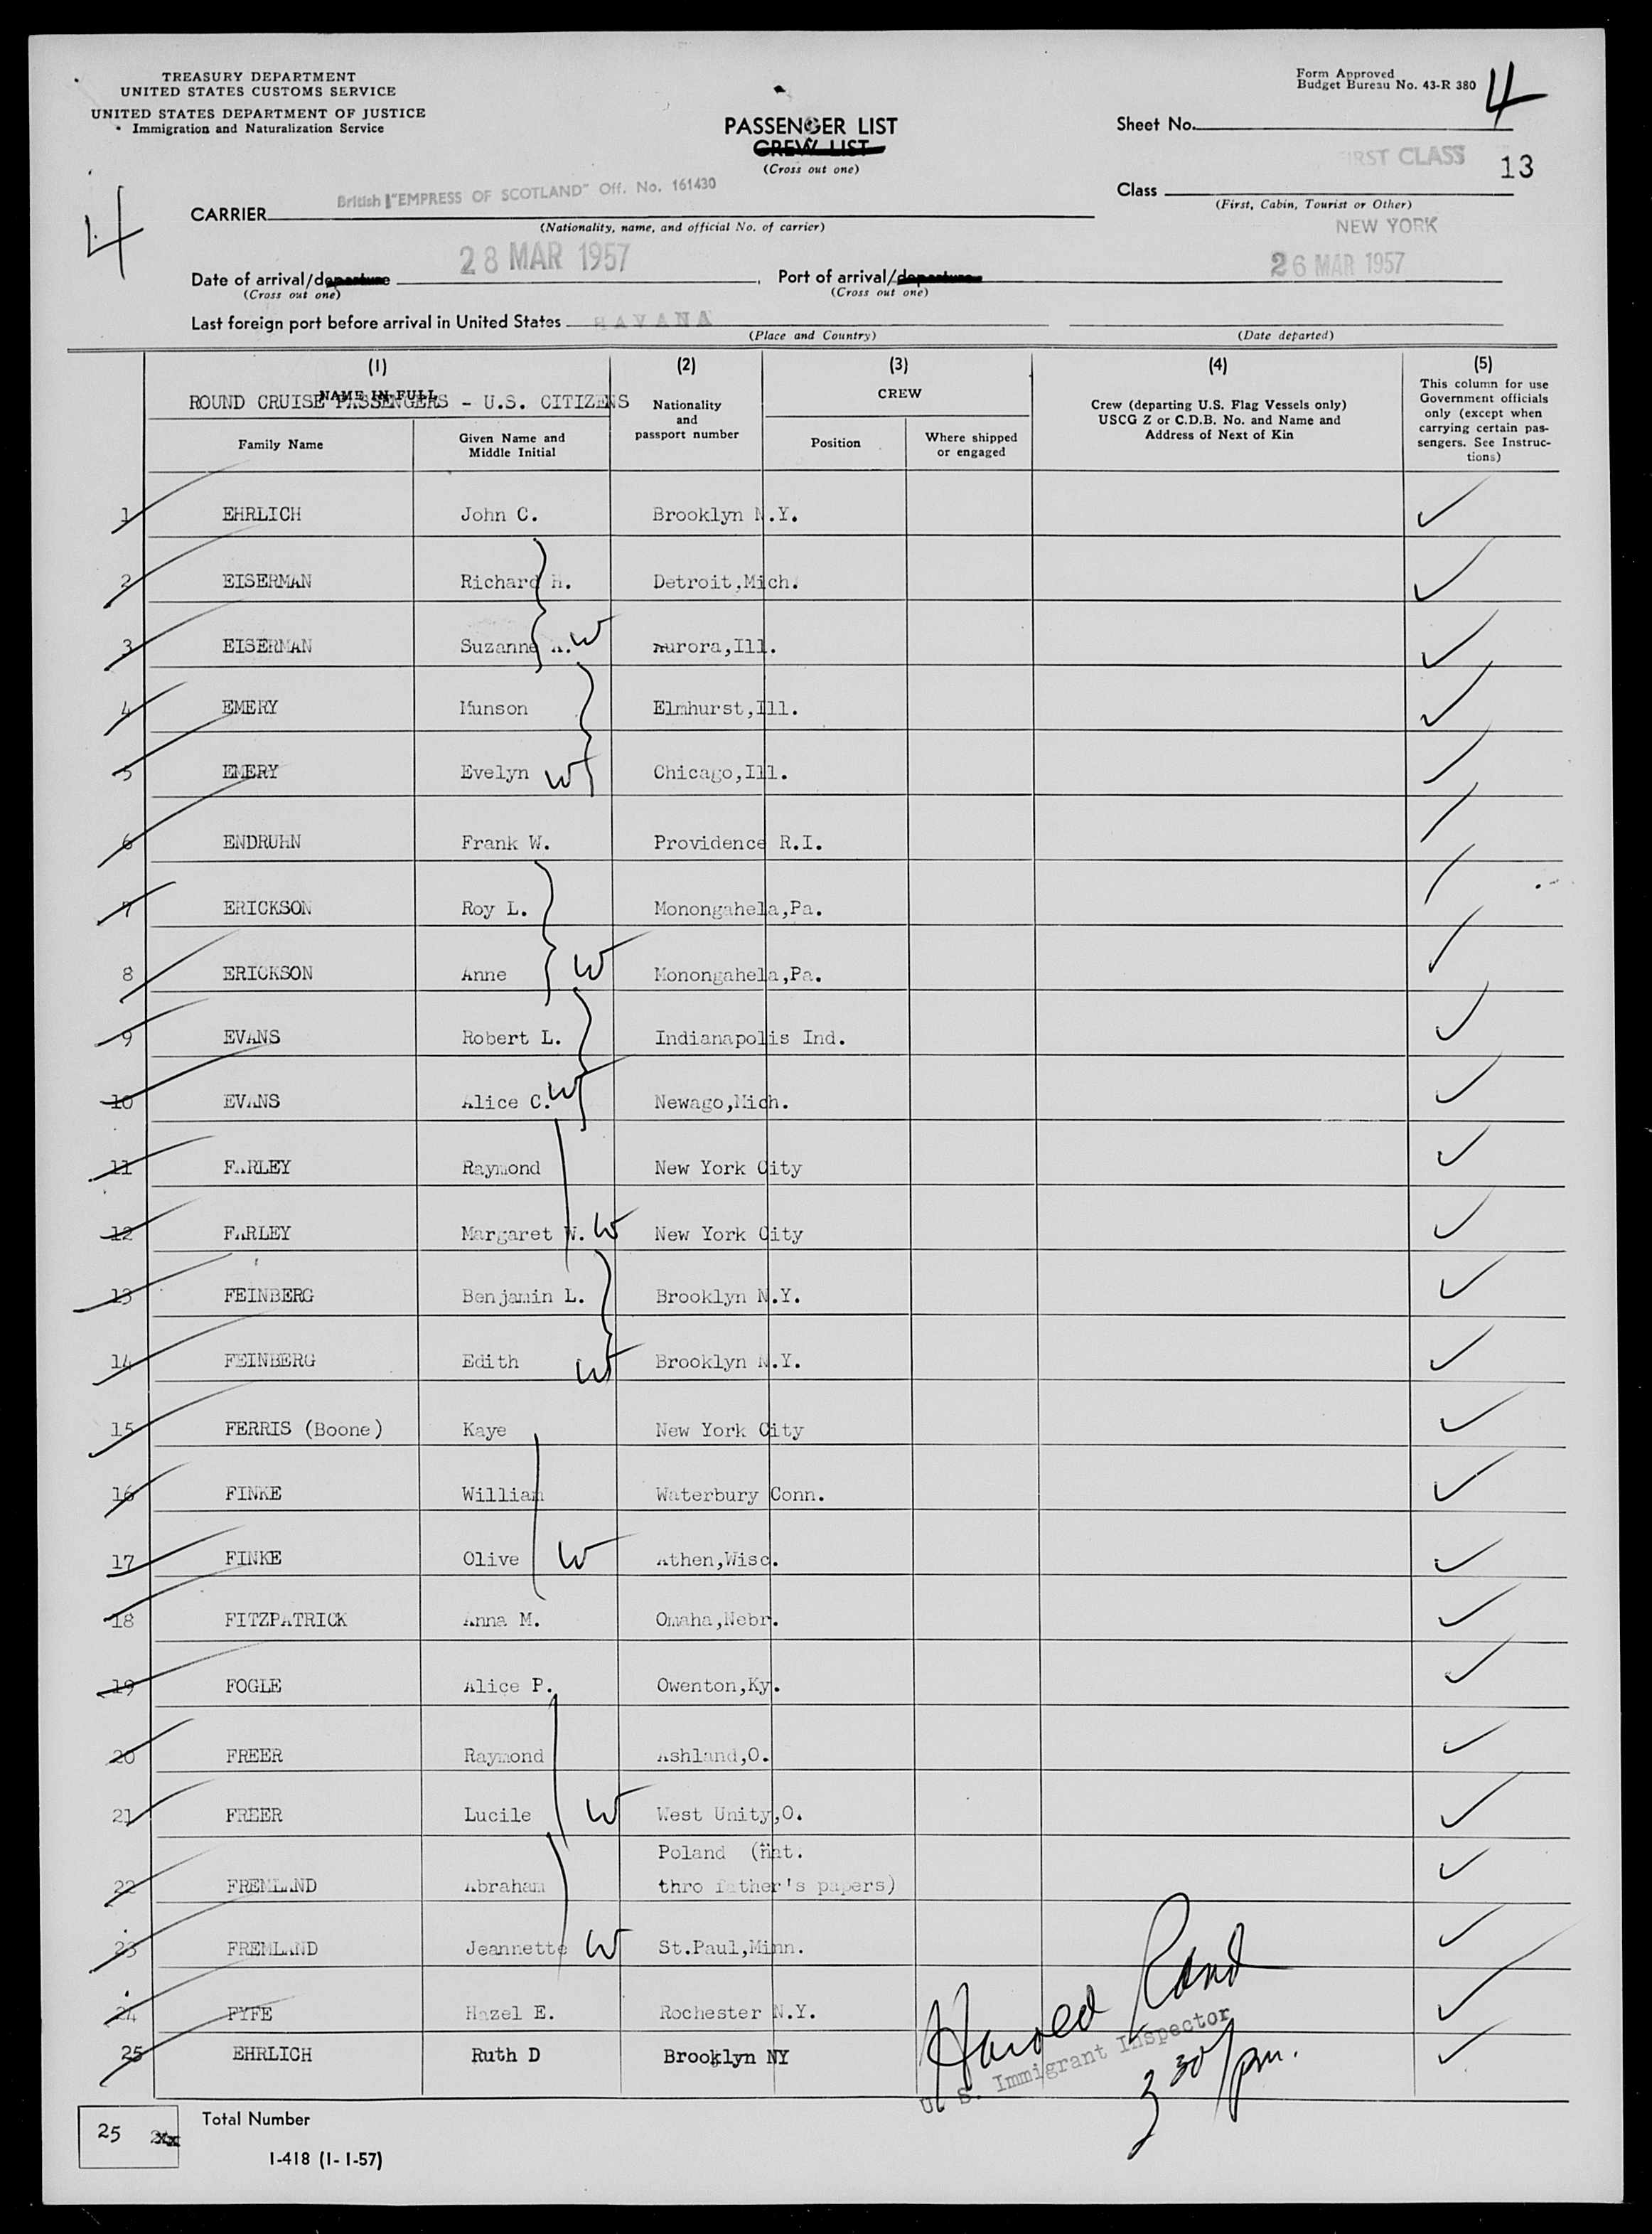 TREASURY DEPARTMENT
UNITED STATES CUSTOMS SERVICE
UNITED STATES DEPARTMENT OF JUSTICE
Immigration and Naturalization Service
Form Approved
Budget Bureau No. 43-R 380
4
PASSENGER LIST
CREW LIST
(Cross out one)
Sheet No.
FIRST CLASS 13
Class
(First, Cabin, Tourist or Other)
4
CARRIER British "EMPRESS OF SCOTLAND" Off. No. 161430
(Nationality, name, and official No. of carrier)
NEW YORK
Date of arrival/departure 28 MAR 1957, Port of arrival/departure 26 MAR 1957
(Cross out one) (Cross out one)
Last foreign port before arrival in United States HAVANA
(Place and Country) (Date departed)
(1) (2) (3) (4) (5)
NAME IN FULL
ROUND CRUISE PASSENGERS - U.S. CITIZENS
Family Name
Given Name and
Middle Initial
Nationality
and
passport number
CREW
Position
Where shipped
or engaged
Crew (departing U.S. Flag Vessels only)
USCG Z or C.D.B. No. and Name and
Address of Next of Kin
This column for use
Government officials
only (except when
carrying certain pas-
sengers. See Instruc-
tions)
1 EHRLICH John C. Brooklyn N.Y.
2 EISERMAN Richard H. Detroit,Mich.
3 EISERMAN Suzanne A. W Aurora,Ill.
4 EMERY Munson Elmhurst,Ill.
5 EMERY Evelyn W Chicago,Ill.
6 ENDRUHN Frank W. Providence R.I.
7 ERICKSON Roy L. Monongahela,Pa.
8 ERICKSON Anne W Monongahela,Pa.
9 EVANS Robert L. Indianapolis Ind.
10 EVANS Alice C. W Newago,Mich.
11 FARLEY Raymond New York City
12 FARLEY Margaret W. W New York City
13 FEINBERG Benjamin L. Brooklyn N.Y.
14 FEINBERG Edith W Brooklyn N.Y.
15 FERRIS (Boone) Kaye New York City
16 FINKE William Waterbury Conn.
17 FINKE Olive W Athen,Wisc.
18 FITZPATRICK Anna M. Omaha,Nebr.
19 FOGLE Alice P. Owenton,Ky.
20 FREER Raymond Ashland,O.
21 FREER Lucile W West Unity,O.
Poland (Nat.
22 FREMLAND Abraham thro father's papers)
23 FREMLAND Jeannette W St.Paul,Minn.
24 FYFE Hazel E. Rochester N.Y.
25 EHRLICH Ruth D Brooklyn NY
Harold Rand
U. S. Immigrant Inspector
3 30/pm.
25 Total Number
I-418 (1-1-57)